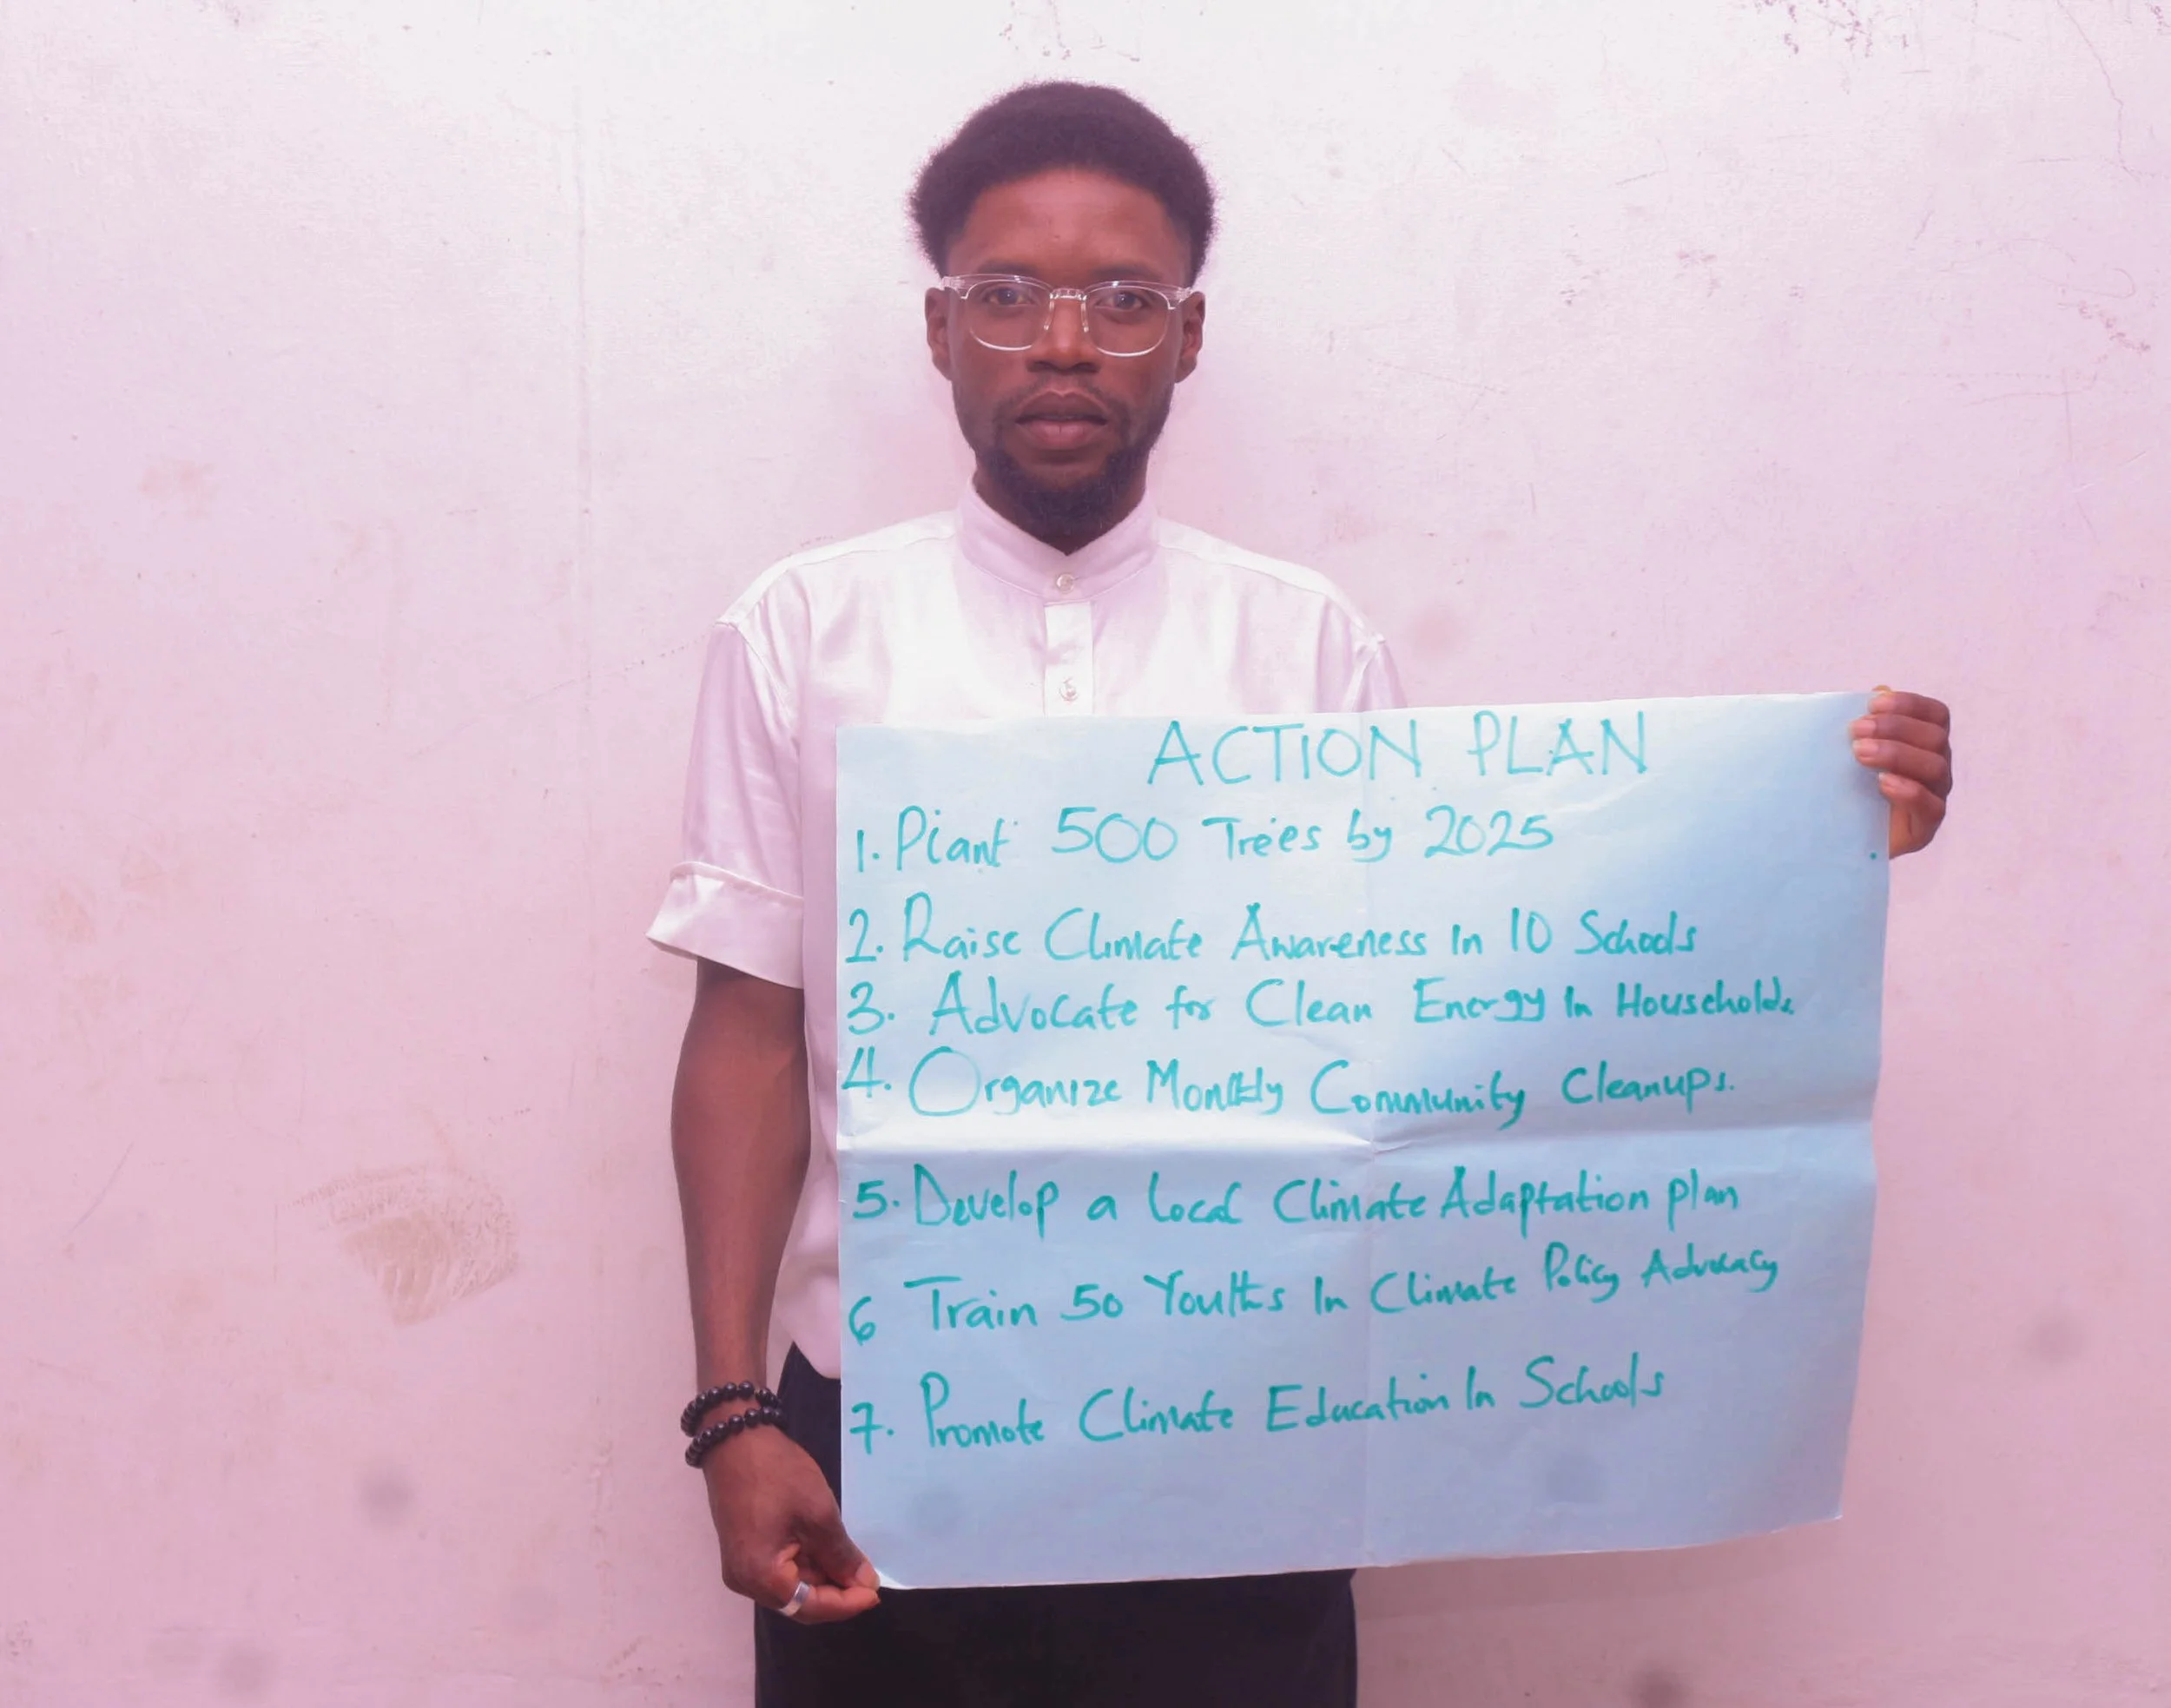 ACTION PLAN
1. Plant 500 Trees by 2025
2. Raise Climate Awareness In 10 Schools
3. Advocate for Clean Energy In Households.
4. Organize Monthly Community Cleanups.
5. Develop a local Climate Adaptation plan
6 Train 50 Youths In Climate Policy Advocacy
7. Promote Climate Education In Schools